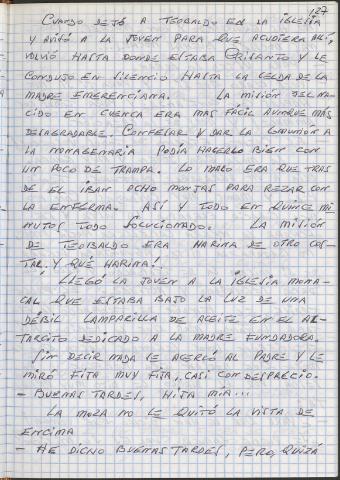 127
CUANDO DEJÓ A TEOBALDO EN LA IGLESIA
Y AVISÓ A LA JOVEN PARA QUE ACUDIERA ALLÍ,
VOLVIÓ HASTA DONDE ESTABA CRISANTO Y LE
CONDUJO EN SILENCIO HASTA LA CELDA DE LA
MADRE EMERENCIANA. LA MISIÓN DEL NA-
CIDO EN CUENCA ERA MAS FÁCIL AUNQUE MÁS
DESAGRADABLE. CONFESAR Y DAR LA COMUNIÓN A
LA NONAGENARIA PODÍA HACERLO BIEN CON
UN POCO DE TRAMPA. LO MALO ERA QUE TRAS
DE EL IBAN OCHO MONJAS PARA REZAR CON
LA ENFERMA. ASÍ Y TODO EN QUINCE MI-
NUTOS TODO SOLUCIONADO. LA MISIÓN
DE TEOBALDO ERA HARINA DE OTRO COS-
TAL. Y QUÉ HARINA!.
LLEGÓ LA JOVEN A LA IGLESIA MONA-
CAL QUE ESTABA BAJO LA LUZ DE UNA
DÉBIL LAMPARILLA DE ACEITE EN EL AL-
TARCITO DEDICADO A LA MADRE FUNDADORA.
SIN DECIR NADA SE ACERCÓ AL PADRE Y LE
MIRÓ FIJA MUY FIJA, CASI CON DESPRECIO.
- BUENAS TARDES, HIJA MÍA...
LA MOZA NO LE QUITÓ LA VISTA DE
ENCIMA
- HE DICHO BUENAS TARDES, PERO, QUIZÁ